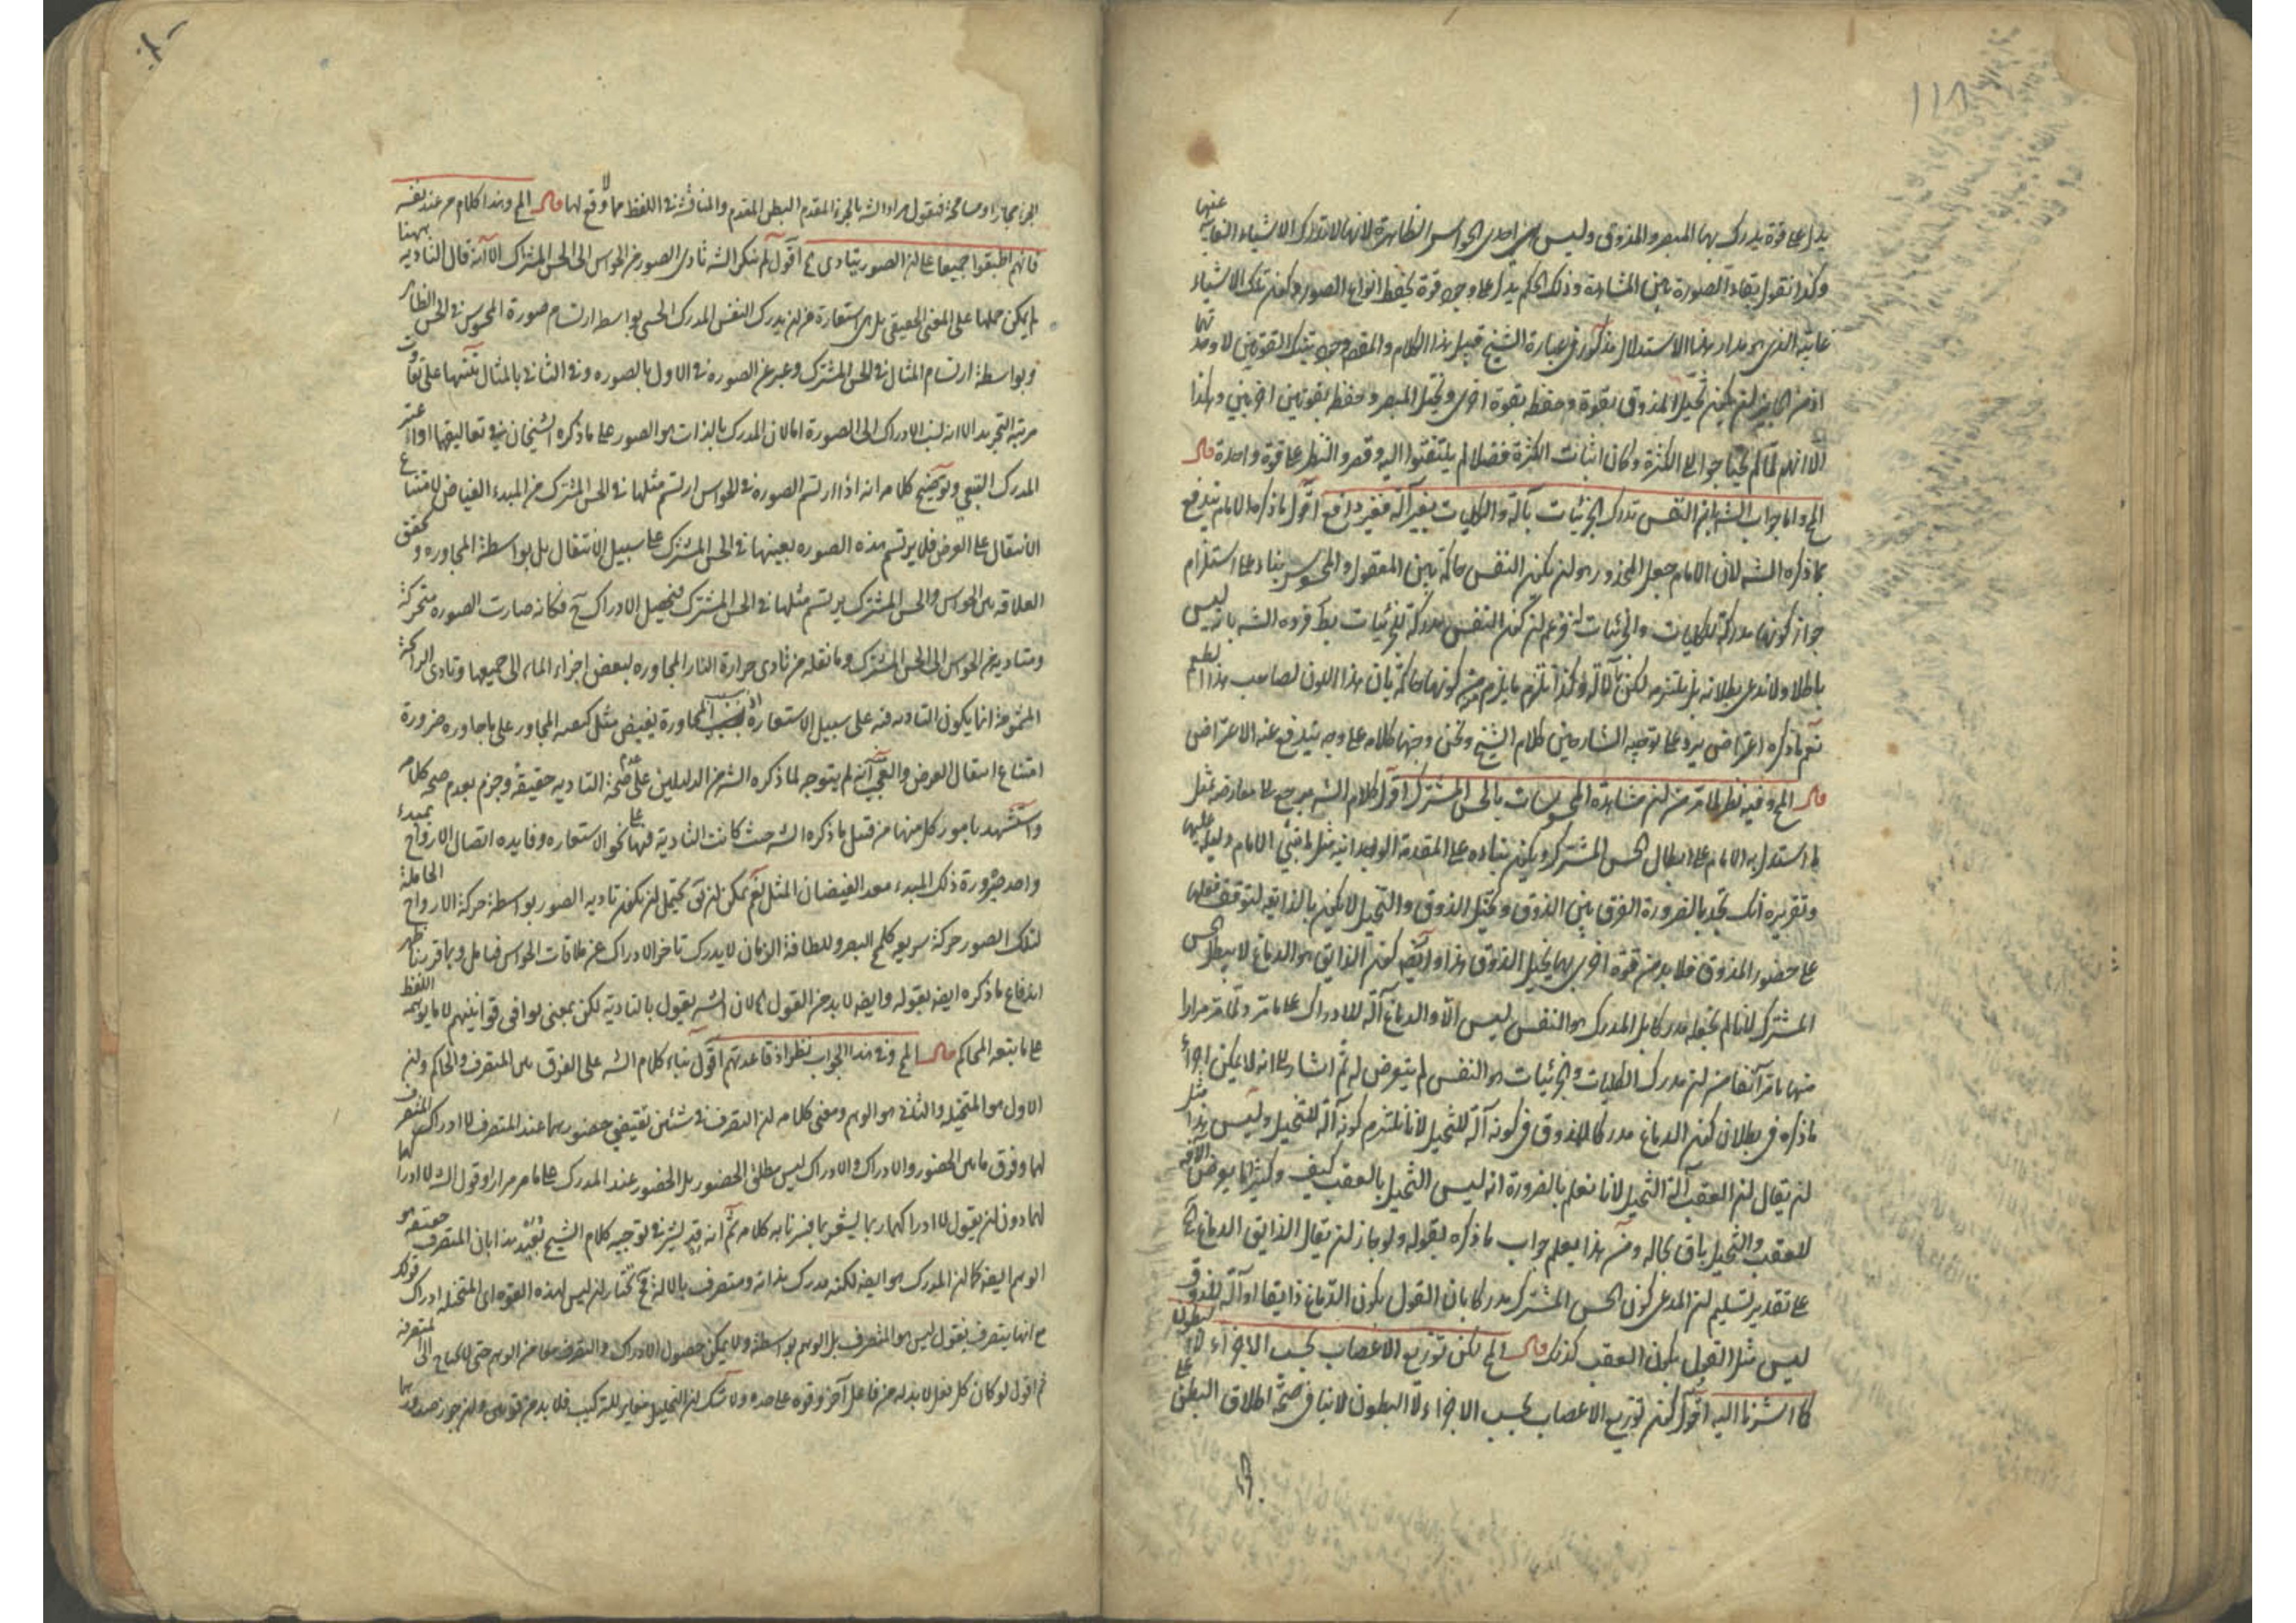 ١١٨
يدل على قوة يدرك بها المبصر والمذوق وليس هي احدى الحواس الظاهرة لانها لا تدرك الاشياء الغايبة عنها
وكذا نقول بقاء الصورة المشاهدة وذلك الحكم يدل على وجود قوة يحفظ انواع الصور تلك الاشياء
غايته الذي هو مدار هذا الاستدلال مذكور في عبارة الشيخ قبيل هذا الكلام والمقصود وجود تينك القوتين لا وحدتها
اذ من الجايز ان يكون تخيل المذوق بقوة وحفظه بقوة اخرى وتخيل المبصر وحفظه بقوتين اخريين وهكذا
الا انهم لما لم يحتاجوا الى الكثرة وكان اثبات الكثرة فضلا لم يلتفتوا اليه وقصروا النظر على قوة واحدة قال
المح واما جواب الشه بان النفس تدرك الجزئيات بآلة والكليات بغير آلة فغير دافع اقول ما ذكره الامام يندفع
بما ذكره الشه لان الامام جعل المحذور هو ان يكون النفس حاكمة بين المعقول والمحسوس بناء على استلزام
جواز كونها مدركة للكليات والجزئيات اذ زعم ان كون النفس مدركة للجزئيات بط فرده الشه بانه ليس
باطلا ولا ندعي بطلانه بل نلتزمه لكن بالآلة وكذا نلتزم ما يلزم من كونها حاكمة بان هذا اللون لصاحب هذا الطعم
نعم ما ذكره اعتراض يرد على توجيه الشارحين كلام الشيخ ونحن وجهنا كلامه على وجه يندفع عنه الاعتراض
قال المح وفيه نظر لما مر من ان مشاهدة المحسوسات بالحس المشترك اقول كلام الشه يرجع الى معارضة بمثل
ما استدل به الامام على ابطال الحس المشترك ويكون بناءه على المقدمة الوجدانية مثل ما بنى الامام دليله عليها
وتقريره انك تجد بالضرورة الفرق بين الذوق وتخيل الذوق والتخيل لا يكون بالذايقة لتوقف فعلها
على حضور المذوق فلا بد من قوة اخرى بها يتخيل الذوق هذا وايضه كون الذايق هو الدماغ لا يبطل الحس
المشترك لانا لم نجعله مدركا بل المدرك هو النفس ليس الا والدماغ آلة للادراك على ما مر ولما مر مرارا
منها ما مر آنفا من ان مدرك الكليات والجزئيات هو النفس لم يتعرض له ثم اشار الى انه لا يمكن اجراء
ما ذكره في بطلان كون الدماغ مدركا للمذوق في كونه آلة للتخيل لانا نلتزم كونه آلة للتخيل وليس هذا مثل
ان يقال ان العقب آلة التخيل لانا نعلم بالضرورة انه ليس التخيل بالعقب كيف وكثيرا ما يعرض الآفة
للعقب والتخيل باق بحاله ومن هذا يعلم جواب ما ذكره بقوله ولو جاز ان يقال الذايق الدماغ
على تقدير تسليم ان المدعى كون الحس المشترك مدركا بان القول بكون الدماغ ذايقا او آلة للذوق
ليس مثل القول بكون العقب كذلك قال المح لكن توزيع الاعصاب بحسب الاجزاء لا البطون
كما اشرنا اليه اقول كون توزيع الاعصاب بحسب الاجزاء لا البطون لا ينافي صحة اطلاق البطن على
الجزء مجازا ومسامحة فنقول مراد الشه بالجزء المقدم البطن المقدم والمناقشة في اللفظ مما لا وقع لها قال المح وهذا كلام من عند نفسه
فانهم اطبقوا جميعا على ان الصور يتادى اه اقول لم ينكر الشه تادى الصور من الحواس الى الحس المشترك الا انه قال التاديه ههنا
لم يمكن حملها على المعنى الحقيقي بل هي استعارة عن ان يدرك النفس المدرك الحسي بواسطة ارتسام صورة المحسوس في الحس الظاهر
وبواسطة ارتسام المثال في الحس المشترك وعبر عن الصوره في الاول بالصوره وفي الثاني بالمثال تنبيها على تفاوت
مرتبة التجريد الا انه نسب الادراك الى الصورة اما لان المدرك بالذات هو الصور على ما ذكره الشيخان في تعاليقهما او اعتبر
المدرك التبعي وتوضيح كلامه انه اذا ارتسم الصوره في الحواس ارتسم مثلها في الحس المشترك من المبدء الفياض لامتناع
الانتقال على العرض فلا يرتسم هذه الصوره بعينها في الحس المشترك على سبيل الانتقال بل بواسطة المجاوره و تحقق
العلاقه بين الحواس والحس المشترك يرتسم مثلها في الحس المشترك فيحصل الادراك ح فكانه صارت الصوره متحركة
ومتاديه من الحواس الى الحس المشترك وما نقله من تادى حرارة النار المجاوره لبعض اجزاء الماء الى جميعها وتادى الرائحة
المشمومة انما يكون التاديه فيه على سبيل الاستعارة المجاورة يفيض مثل كيفية المجاور على ما جاوره ضرورة
امتناع انتقال العرض والعجب انه لم يتوجه لما ذكره الشه من الدليلين على عدم صحة التاديه حقيقة وجزم بعدم صحة كلامه
واستشهد بامور كل منها من قبيل ما ذكره الشه حيث كانت التادية فيها على نحو الاستعاره وفايده اتصال الارواح بمبدء
واحد صيرورة ذلك المبدء معد الفيضان المثل نعم يمكن ان يق يحتمل ان يكون تاديه الصور بواسطة حركة الارواح الحاملة
لتلك الصور حركة سريعه كلمح البصر وللطافة الزمان لا يدرك تاخر الادراك عن ملاقات الحواس فتامل وبما قررنا ظهر
اندفاع ما ذكره ايضه بقوله وايضه لا بد من القول اه لان الشه يقول بالتادية لكن بمعنى يوافق قوانينهم لا ما يوهمه اللفظ
على ما تبعه المحاكم قال المح وفي هذا الجواب نظر اذ قاعدتهم اقول بناء كلام الشه على الفرق بين المتصرف والحاكم وان
الاول هو المتخيله والثاني هو الوهم ومعنى كلامه ان التصرف في شيئين يقتضي حضورهما عند المتصرف لا ادراك المتصرف
لهما وفرق ما بين الحضور والادراك والادراك ليس مطلق الحضور بل الحضور عند المدرك على ما مر مرارا وقول الشه لا ادراكهما
لهما دون ان يقول لا ادراكهما ربما يشعر بما فسرنا به كلامه ثم انه قد يشير في توجيه كلام الشيخ بعيد هذا بان المتصرف حقيقة هو
الوهم ايضه كما ان المدرك هو ايضه لكنه مدرك بذاته ومتصرف بالآلة فح نختار ان ليس لهذه القوه اى المتخيله ادراك قولك
مع انها يتصرف نقول ليس هو المتصرف بل الوهم بواسطة ولا يمكن حصول الادراك والتصرف معا من الوهم حتى لا يحتاج الى المتصرفة
ثم اقول لو كان كل فعل لا بد له من فاعل آخر وقوه على حده ولا شك ان التحليل مغاير للتركيب فلا بد من قوتين وان جوز صدورهما